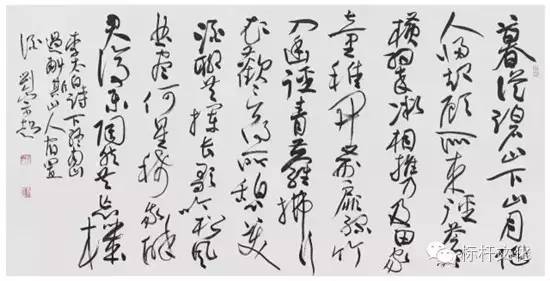 暮從碧山下山月隨
人歸却顧所來徑蒼蒼
橫翠微相攜及田家
童稚開荊扉綠竹
入幽徑青蘿拂行
衣歡言得所憩美
酒聊共揮長歌吟松風
曲盡河星稀我醉
君復樂陶然共忘機
李太白詩下終南山
過斛斯山人宿置
酒 劉
标杆文化